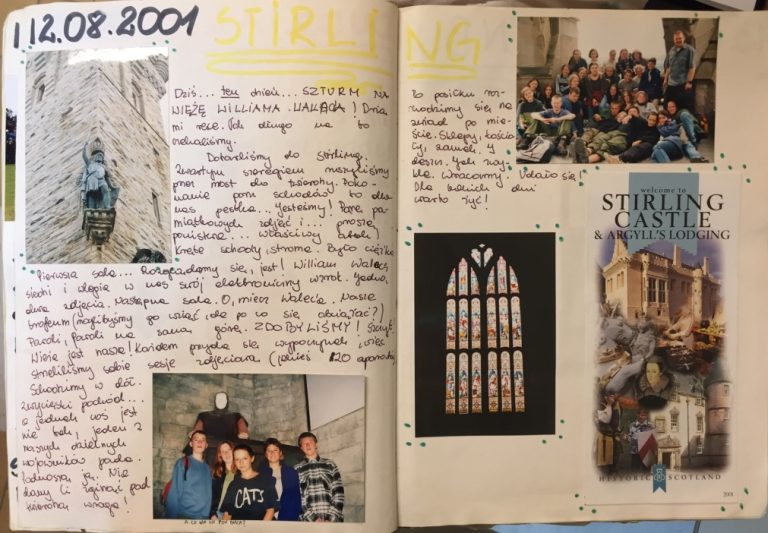 12.08.2001 STIRLING
Dziś... ten dzień... SZTURM NA
WIEŻĘ WILLIAMA WALLACA! Drżą
mi ręce. Tak długo na to
czekaliśmy.
Dotarliśmy do Stirling.
Zwartym szeregiem ruszyliśmy
przez most do twierdzy. Poko-
nanie paru schodów to dla
nas pestka... Jesteśmy! Parę pa-
miątkowych zdjęć i... proszę
państwa... właściwy atak!
Kręte schody, strome. Było ciężko
Pierwsza sala... Rozglądamy się, jest! William Wallace
siedzi i wlepia w nas swój elektroniczny wzrok. Jedno,
dwa zdjęcia. Następna sala. O, miecz Wallece. Nasze
trofeum (moglibyśmy go wziąć, ale po co się obciążać?)
Powoli, powoli na samą górę. ZDOBYLIŚMY!
Wieża jest nasza! Każdemu przyda się wypoczynek, więc
strzeliliśmy sobie sesję zdjęciową (jakieś 120 aparatów)
Schodzimy w dół.
Zwycięski pochód...
a jednak coś jest
nie tak, jeden z
naszych dzielnych
wojowników pada.
Podnoszą ją. Nie
damy Ci zginąć pod
wroga!
CATS
A CO WY NA
Po posiłku roz-
chodzimy się na
zwiad po mie-
ście. Sklepy, kościo-
ły, zamek. I
deszcz. Jak zwy-
kle. Wracamy. Udało się!
Dla takich dni
warto żyć!
welcome to
STIRLING
CASTLE
& ARGYLL'S LODGING
HISTORIC SCOTLAND
2001